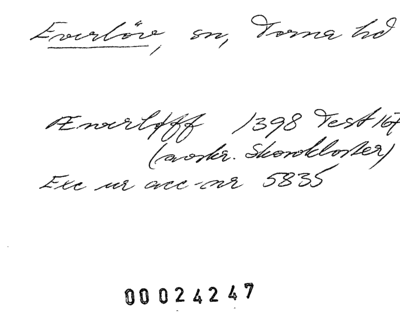 Everlöv, sn, Torna hd
Æwerløff 1398 Test 167
(avskr. Skarokloster)
Exc ur acc-nr 5835
00024247